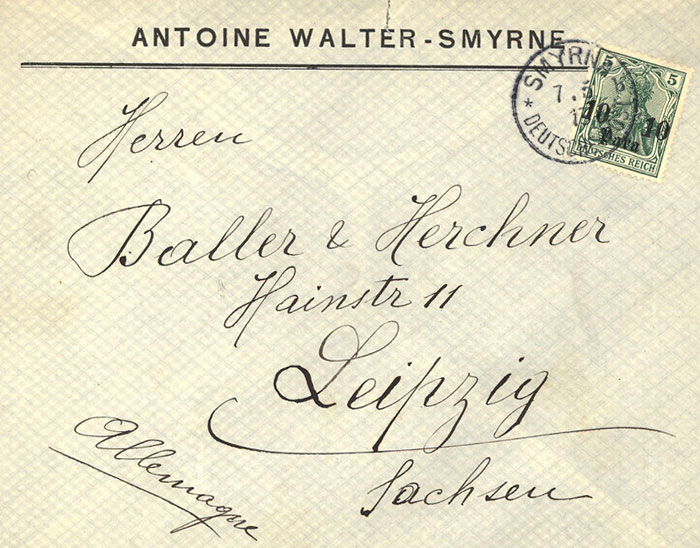 ANTOINE WALTER-SMYRNE
SMYRNA
DEUTSCHE
5 5
10 10
Para
DEUTSCHES REICH
Herren
Baller & Herchner
Hainstr 11
Leipzig
Sachsen
Allemagne